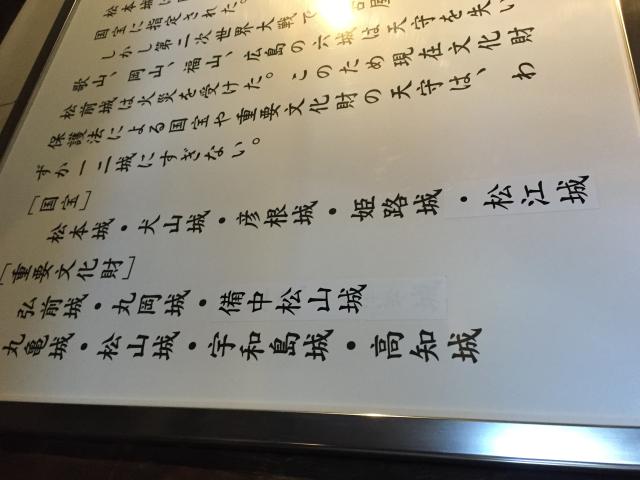 松本城は
国宝に指定された。
しかし第二次世界大戦で
歌山、岡山、福山、広島の六城は天守を失い
松前城は火災を受けた。このため現在文化財
保護法による国宝や重要文化財の天守は、わ
ずか一二城にすぎない。
［国宝］
松本城・犬山城・彦根城・姫路城・松江城
［重要文化財］
弘前城・丸岡城・備中松山城
丸亀城・松山城・宇和島城・高知城